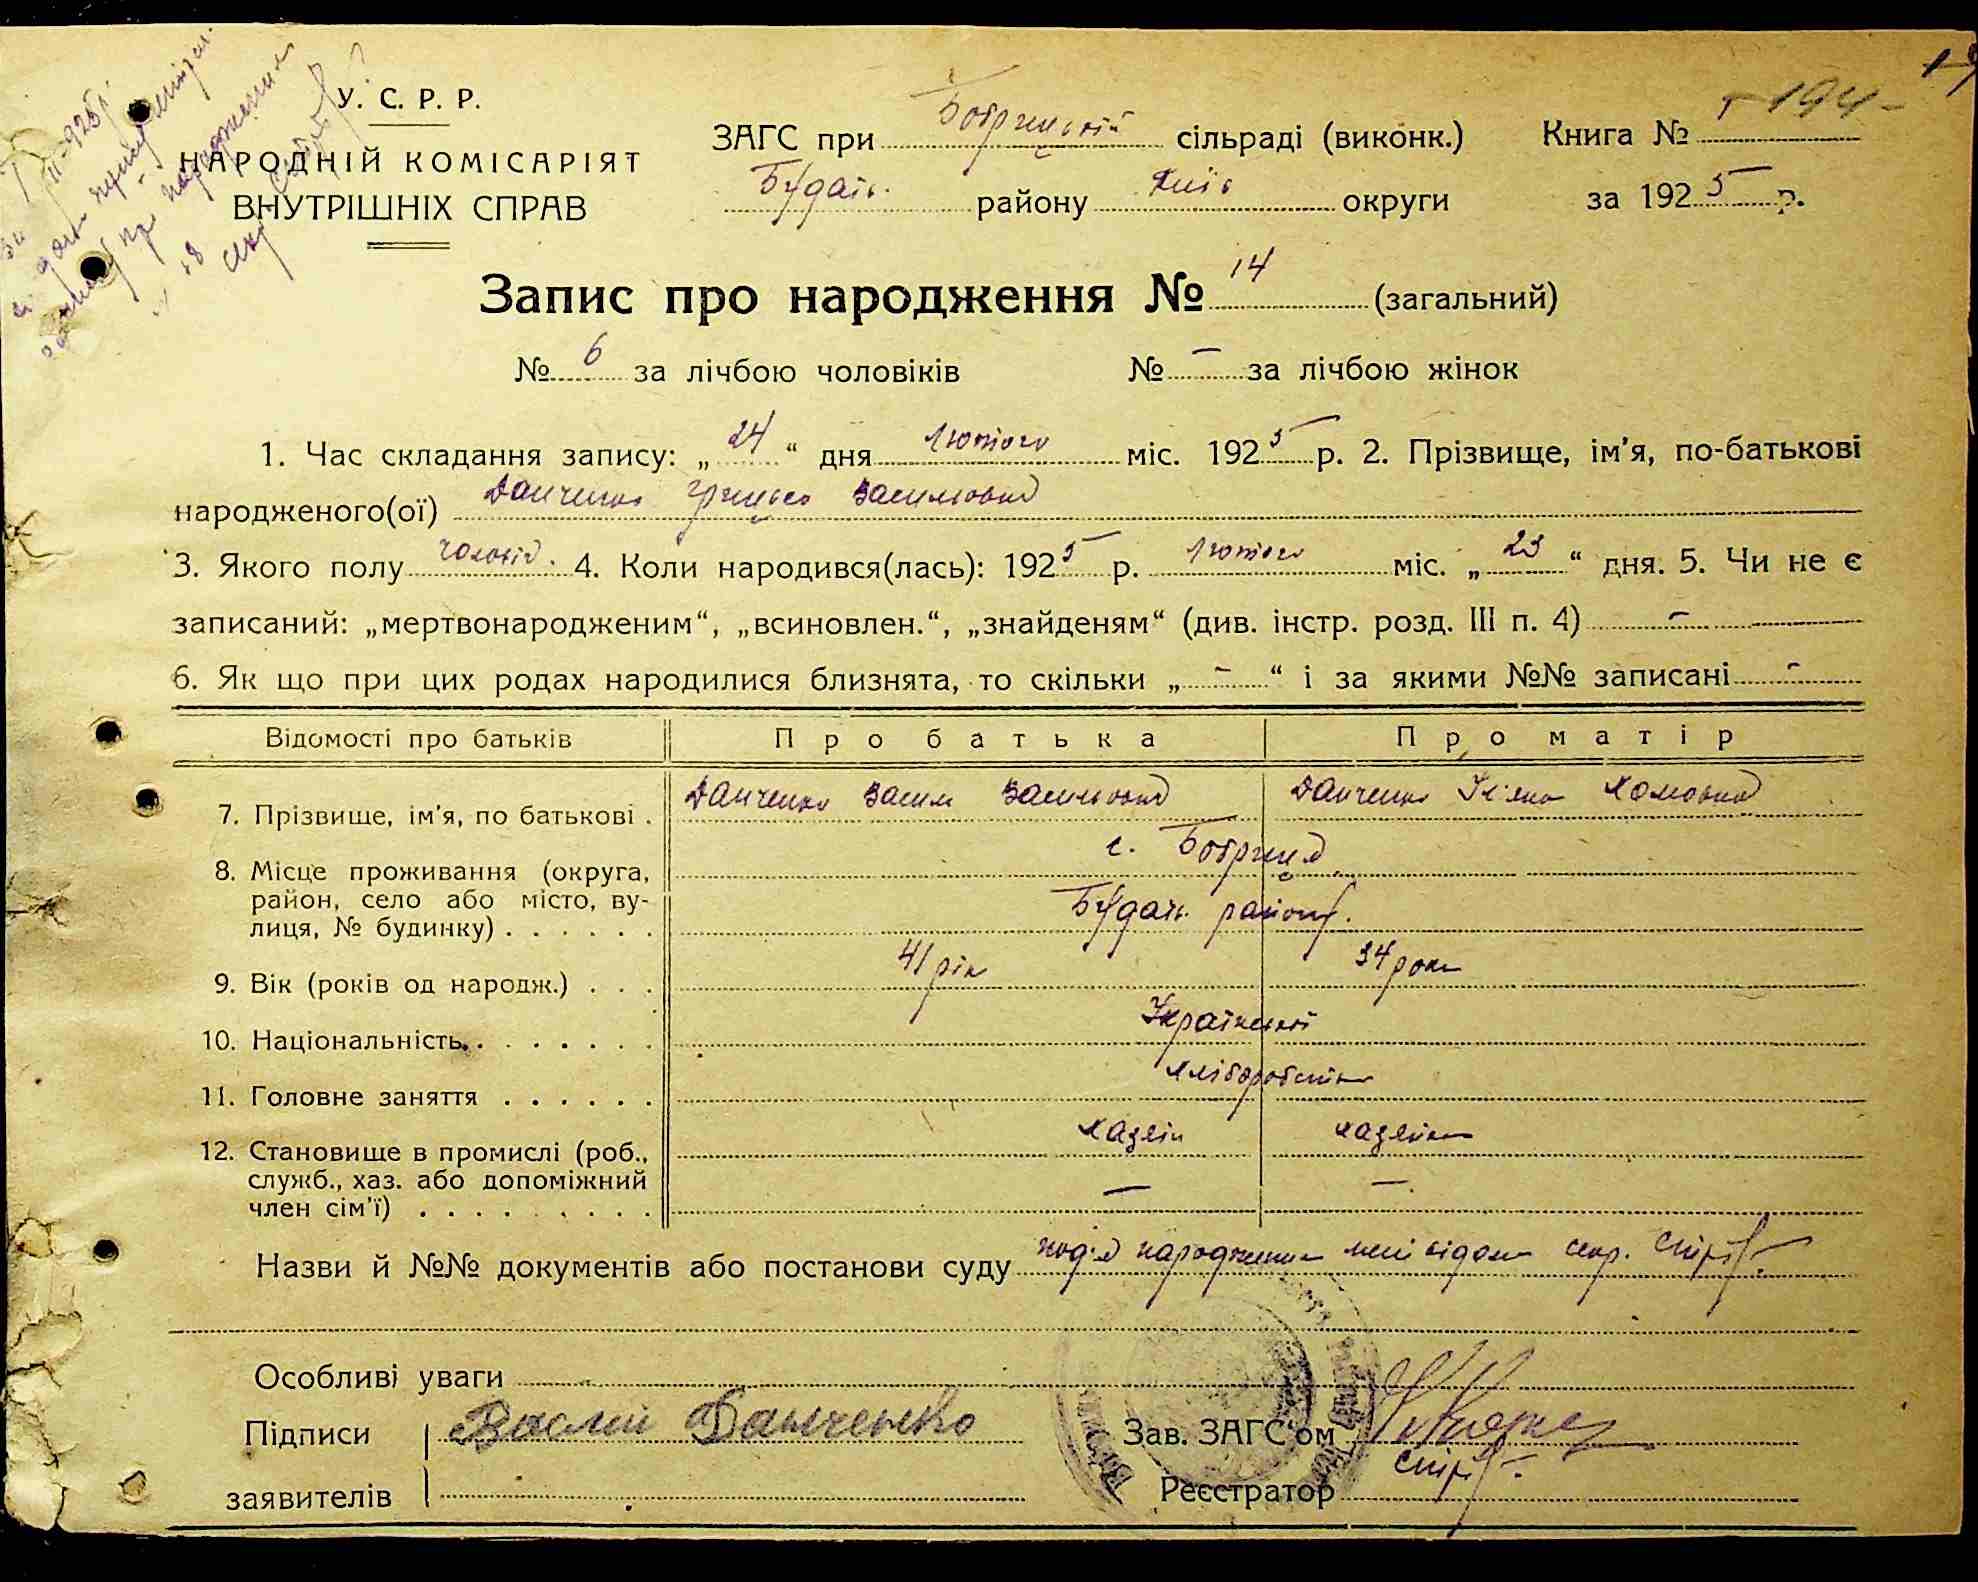 У. С. Р. Р.
НАРОДНІЙ КОМІСАРІЯТ
ВНУТРІШНІХ СПРАВ
ЗАГС при Бобрицькій сільраді (виконк.) Книга № 194
Будаїв. району Київ округи за 1925 р.
Запис про народження № 14 (загальний)
№ 6 за лічбою чоловіків № – за лічбою жінок
1. Час складання запису: „24“ дня лютого міс. 1925 р. 2. Прізвище, ім'я, по-батькові
народженого(ої) Данченко Грицько Васильович
3. Якого полу чоловіч. 4. Коли народився(лась): 1925 р. лютого міс. „23“ дня. 5. Чи не є
записаний: „мертвонародженим“, „всиновлен.“, „знайденям“ (див. інстр. розд. III п. 4) –
6. Як що при цих родах народилися близнята, то скільки „–“ і за якими №№ записані –
Відомості про батьків Про батька Про матір
7. Прізвище, ім'я, по батькові . Данченко Васил Васильович Данченко Уляна Хомовна
8. Місце проживання (округа, с. Бобриця
район, село або місто, ву-
лиця, № будинку) . . . . . . Будаїв. району.
9. Вік (років од народж.) . . . 41 рік 34 роки
10. Національність. . . . . . . . Української
11. Головне заняття . . . . . . хліборобство
12. Становище в промислі (роб., хазяїн хазяйка
служб., хаз. або допоміжний
член сім'ї) . . . . . . . . . – –
Назви й №№ документів або постанови суду под'я народження мені відом секр.
Особливі уваги
Підписи Василій Данченко Зав. ЗАГС'ом
заявителів Реєстратор